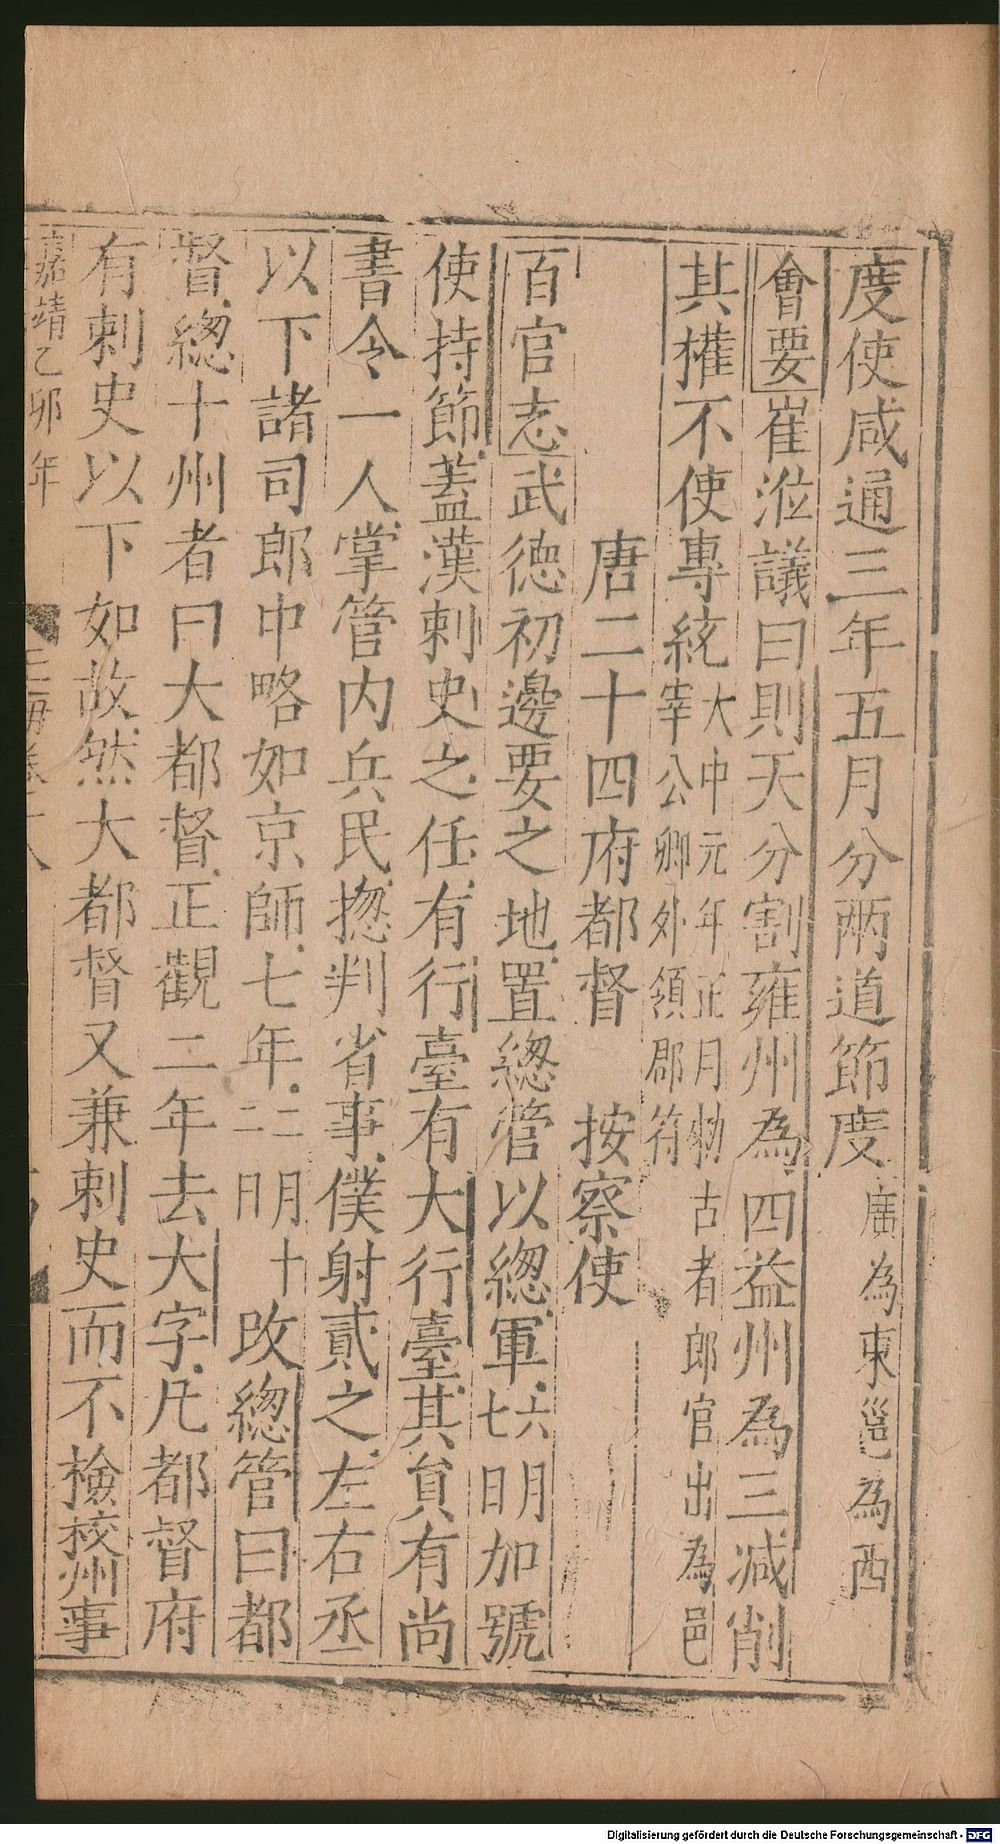 度使咸通三年五月分兩道節度廣為東邕為西
會要崔涖議曰則天分割雍州為四益州為三減削
其權不使專統大中元年正月勑古者郎官出為邑宰公卿外領郡符
唐二十四府都督 按察使
百官志武德初邊要之地置總管以總軍六明七日加號
使持節蓋漢刺史之任有行臺有大行臺其貟有尚
書令一人掌管內兵民揔判省事僕射貳之左右丞
以下諸司郎中略如京師七年二明十二日改總管曰都
督總十州者曰大都督正觀二年去大字凡都督府
有刺史以下如故然大都督又兼刺史而不檢校州事
嘉靖乙卯年
玉海卷
Digitalisierung gefördert durch die Deutsche Forschungsgemeinschaft - DFG